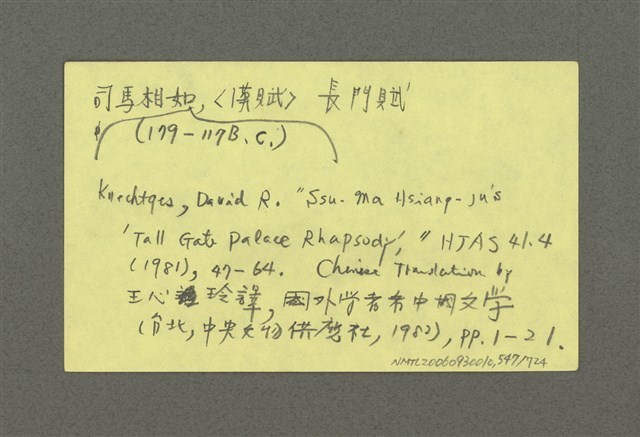 司馬相如,〈漢賦〉 長門賦
(179-117B.C.)
Knechtges, David R. "Ssu-ma Hsiang-ju's
'Tall Gate Palace Rhapsody'," HJAS 41.4
(1981), 47-64. Chinese Translation by
王心玲譯, 國外学者看中国文学
(台北,中央文物供應社, 1982), pp.1-21.
NMTL20060930010,547/724